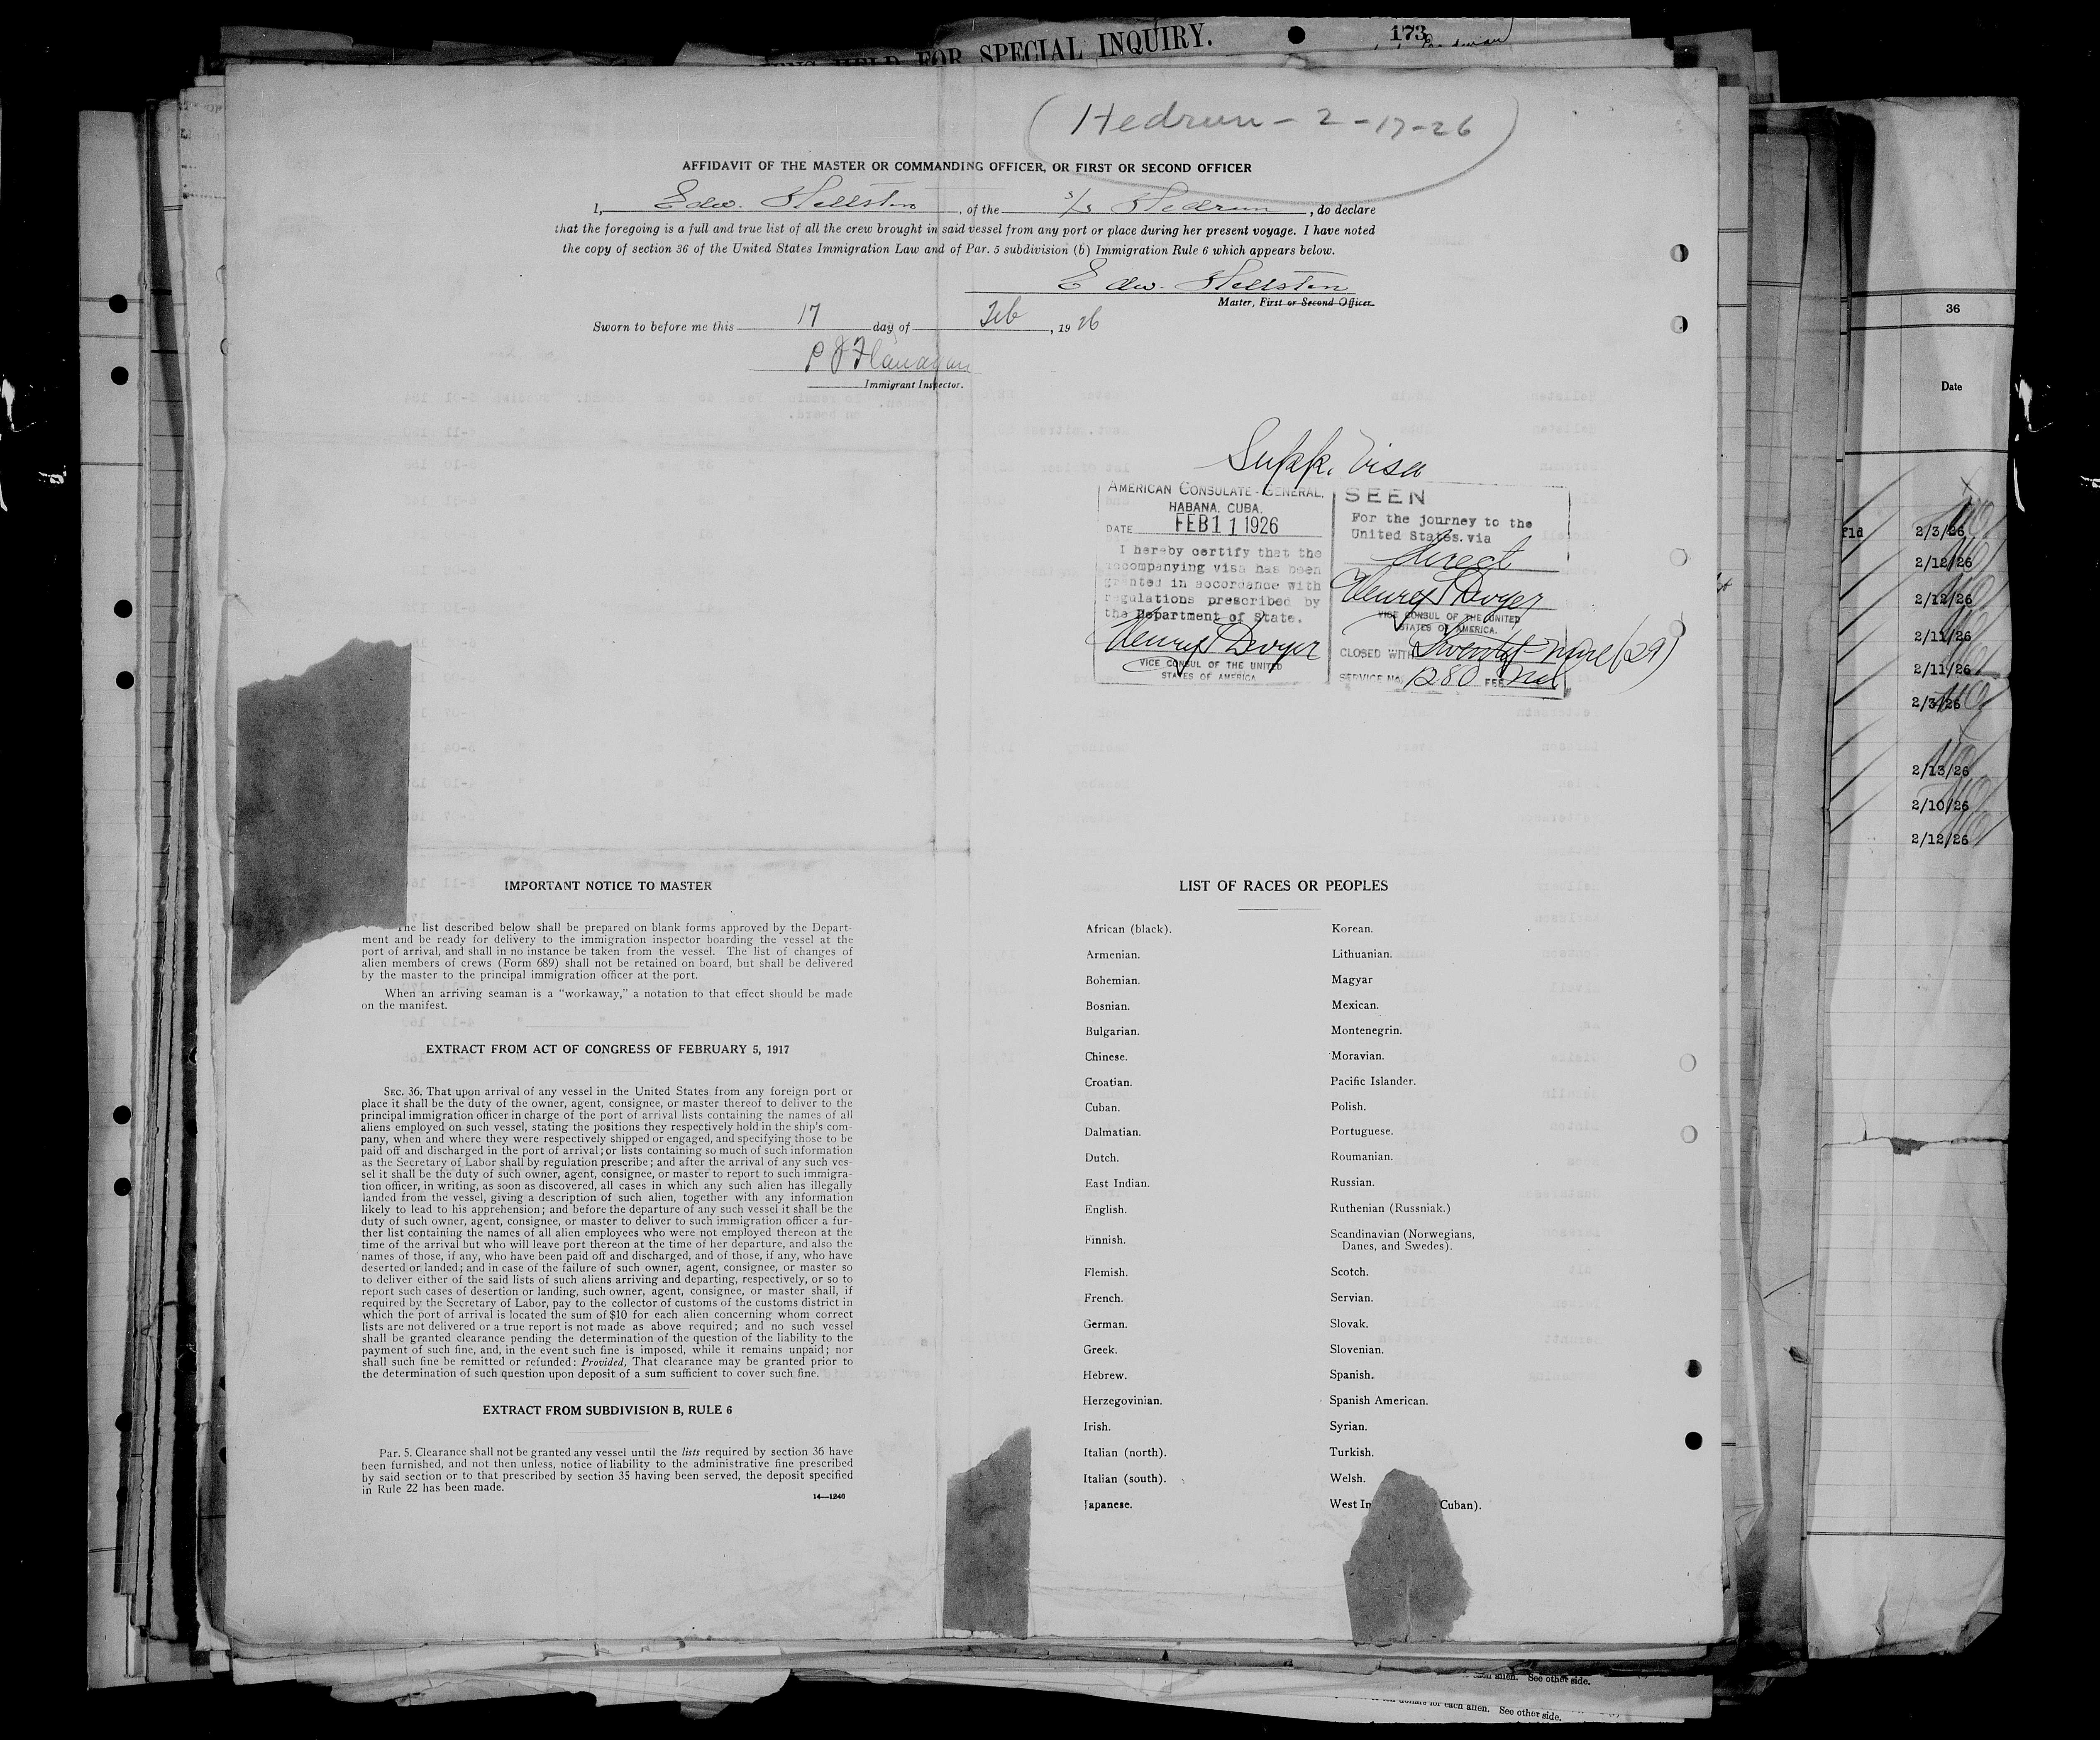 FOR SPECIAL INQUIRY.
173
(Hedrun - 2-17-26)
AFFIDAVIT OF THE MASTER OR COMMANDING OFFICER, OR FIRST OR SECOND OFFICER
I, Edw. Hellsten, of the s/s Hedrun, do declare
that the foregoing is a full and true list of all the crew brought in said vessel from any port or place during her present voyage. I have noted
the copy of section 36 of the United States Immigration Law and of Par. 5 subdivision (b) Immigration Rule 6 which appears below.
Edw. Hellsten
Master, First or Second Officer.
Sworn to before me this 17 day of Feb, 1926
P J Flanagan
Immigrant Inspector.
Supp. Visa
AMERICAN CONSULATE-GENERAL,
HABANA, CUBA.
DATE FEB 11 1926
I hereby certify that the
accompanying visa has been
granted in accordance with
regulations prescribed by
the Department of State.
Henry T Dwyer
VICE CONSUL OF THE UNITED
STATES OF AMERICA
SEEN
For the journey to the
United States via
direct
Henry T Dwyer
VICE CONSUL OF THE UNITED
STATES OF AMERICA.
CLOSED WITH Twenty-nine (29)
SERVICE No. 1280 FEE Nil
IMPORTANT NOTICE TO MASTER
The list described below shall be prepared on blank forms approved by the Depart-
ment and be ready for delivery to the immigration inspector boarding the vessel at the
port of arrival, and shall in no instance be taken from the vessel. The list of changes of
alien members of crews (Form 689) shall not be retained on board, but shall be delivered
by the master to the principal immigration officer at the port.
When an arriving seaman is a "workaway," a notation to that effect should be made
on the manifest.
EXTRACT FROM ACT OF CONGRESS OF FEBRUARY 5, 1917
SEC. 36. That upon arrival of any vessel in the United States from any foreign port or
place it shall be the duty of the owner, agent, consignee, or master thereof to deliver to the
principal immigration officer in charge of the port of arrival lists containing the names of all
aliens employed on such vessel, stating the positions they respectively hold in the ship's com-
pany, when and where they were respectively shipped or engaged, and specifying those to be
paid off and discharged in the port of arrival; or lists containing so much of such information
as the Secretary of Labor shall by regulation prescribe; and after the arrival of any such ves-
sel it shall be the duty of such owner, agent, consignee, or master to report to such immigra-
tion officer, in writing, as soon as discovered, all cases in which any such alien has illegally
landed from the vessel, giving a description of such alien, together with any information
likely to lead to his apprehension; and before the departure of any such vessel it shall be the
duty of such owner, agent, consignee, or master to deliver to such immigration officer a fur-
ther list containing the names of all alien employees who were not employed thereon at the
time of the arrival but who will leave port thereon at the time of her departure, and also the
names of those, if any, who have been paid off and discharged, and of those, if any, who have
deserted or landed; and in case of the failure of such owner, agent, consignee, or master so
to deliver either of the said lists of such aliens arriving and departing, respectively, or so to
report such cases of desertion or landing, such owner, agent, consignee, or master shall, if
required by the Secretary of Labor, pay to the collector of customs of the customs district in
which the port of arrival is located the sum of $10 for each alien concerning whom correct
lists are not delivered or a true report is not made as above required; and no such vessel
shall be granted clearance pending the determination of the question of the liability to the
payment of such fine, and, in the event such fine is imposed, while it remains unpaid; nor
shall such fine be remitted or refunded: Provided, That clearance may be granted prior to
the determination of such question upon deposit of a sum sufficient to cover such fine.
EXTRACT FROM SUBDIVISION B, RULE 6
Par. 5. Clearance shall not be granted any vessel until the lists required by section 36 have
been furnished, and not then unless, notice of liability to the administrative fine prescribed
by said section or to that prescribed by section 35 having been served, the deposit specified
in Rule 22 has been made.
14—1240
LIST OF RACES OR PEOPLES
African (black).
Armenian.
Bohemian.
Bosnian.
Bulgarian.
Chinese.
Croatian.
Cuban.
Dalmatian.
Dutch.
East Indian.
English.
Finnish.
Flemish.
French.
German.
Greek.
Hebrew.
Herzegovinian.
Irish.
Italian (north).
Italian (south).
Japanese.
Korean.
Lithuanian.
Magyar
Mexican.
Montenegrin.
Moravian.
Pacific Islander.
Polish.
Portuguese.
Roumanian.
Russian.
Ruthenian (Russniak.)
Scandinavian (Norwegians,
Danes, and Swedes).
Scotch.
Servian.
Slovak.
Slovenian.
Spanish.
Spanish American.
Syrian.
Turkish.
Welsh.
West In Cuban).
36
Date
fld 2/3/26
2/12/26
2/12/26
2/11/26
2/11/26
2/3/26
2/13/26
2/10/26
2/12/26
alien. See other side.
for each alien. See other side.